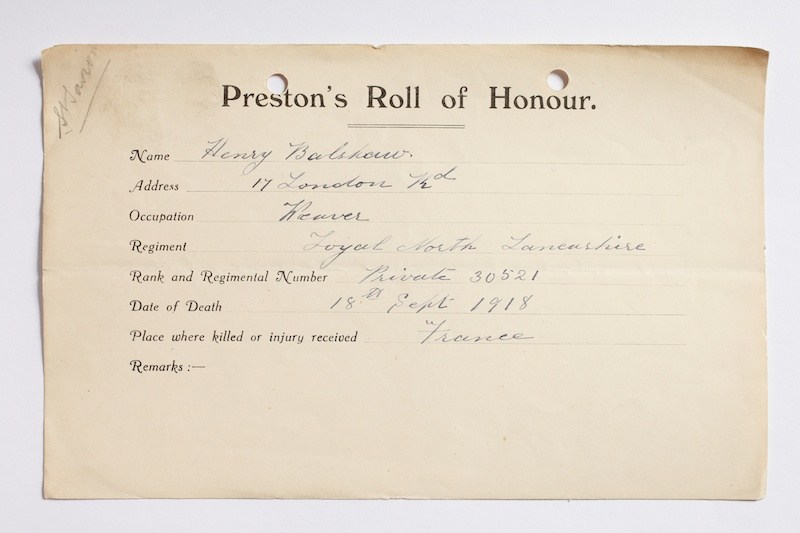 Preston's Roll of Honour.
Name Henry Balshaw.
Address 17 London Rd
Occupation Weaver
Regiment Loyal North Lancashire
Rank and Regimental Number Private 30521
Date of Death 18th Sept 1918
Place where killed or injury received France
Remarks :—